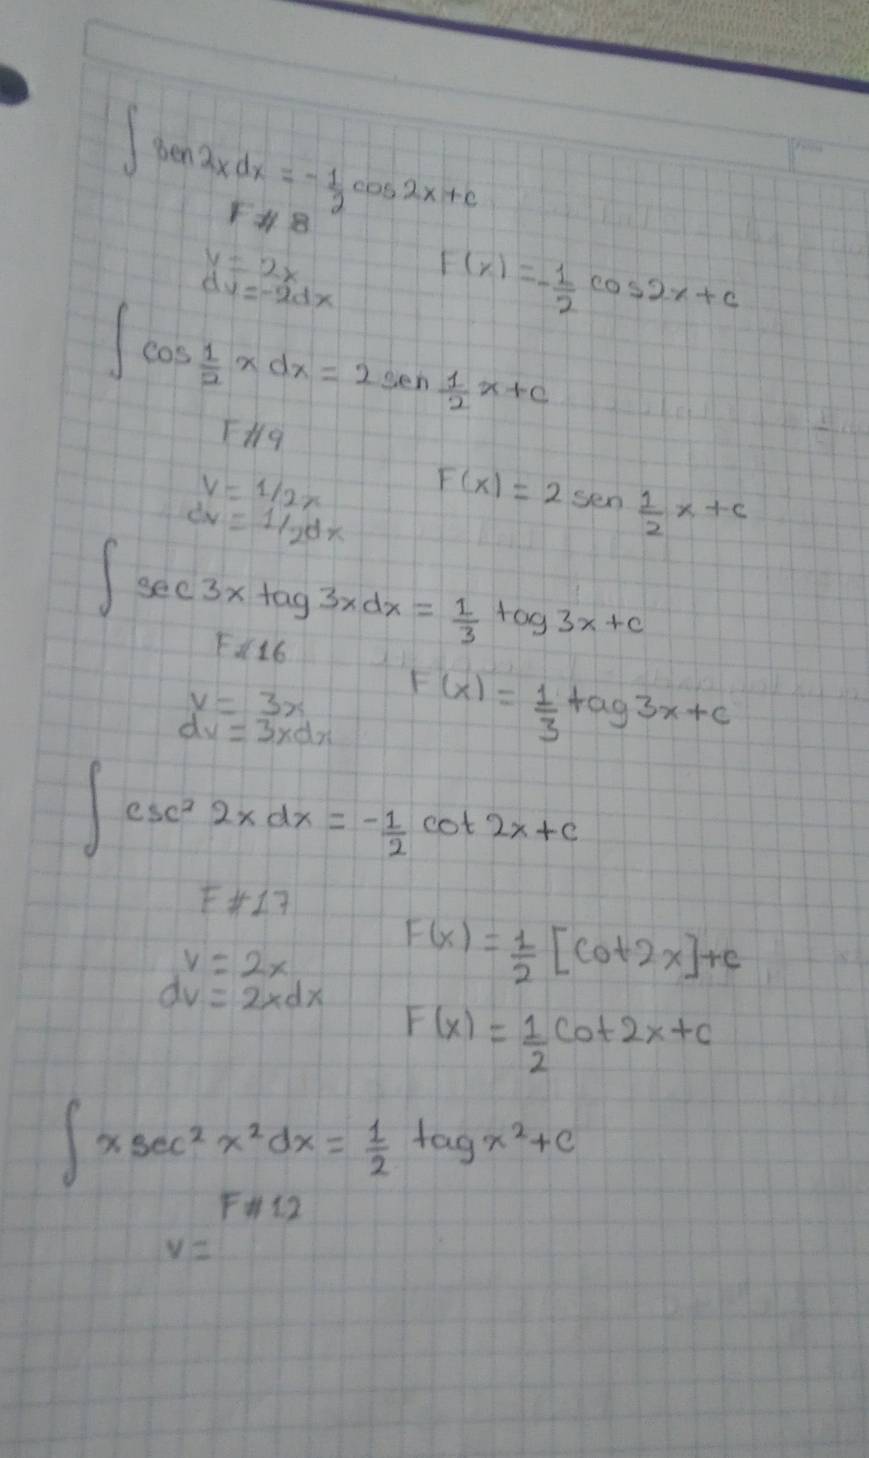 ∫ sen 2x dx = -1/2 cos 2x + c
F # 8
v = 2x
dv = -2dx
F(x) = -1/2 cos 2x + c
∫ cos 1/2 x dx = 2 sen 1/2 x + c
F # 9
v = 1/2x
dv = 1/2dx
F(x) = 2 sen 1/2 x + c
∫ sec 3x tag 3x dx = 1/3 tag 3x + c
F # 16
v = 3x
dv = 3xdx
F(x) = 1/3 tag 3x + c
∫ csc² 2x dx = -1/2 cot 2x + c
F # 17
v = 2x
dv = 2xdx
F(x) = 1/2 [cot 2x] + c
F(x) = 1/2 cot 2x + c
∫ x sec² x² dx = 1/2 tag x² + c
F # 12
v =